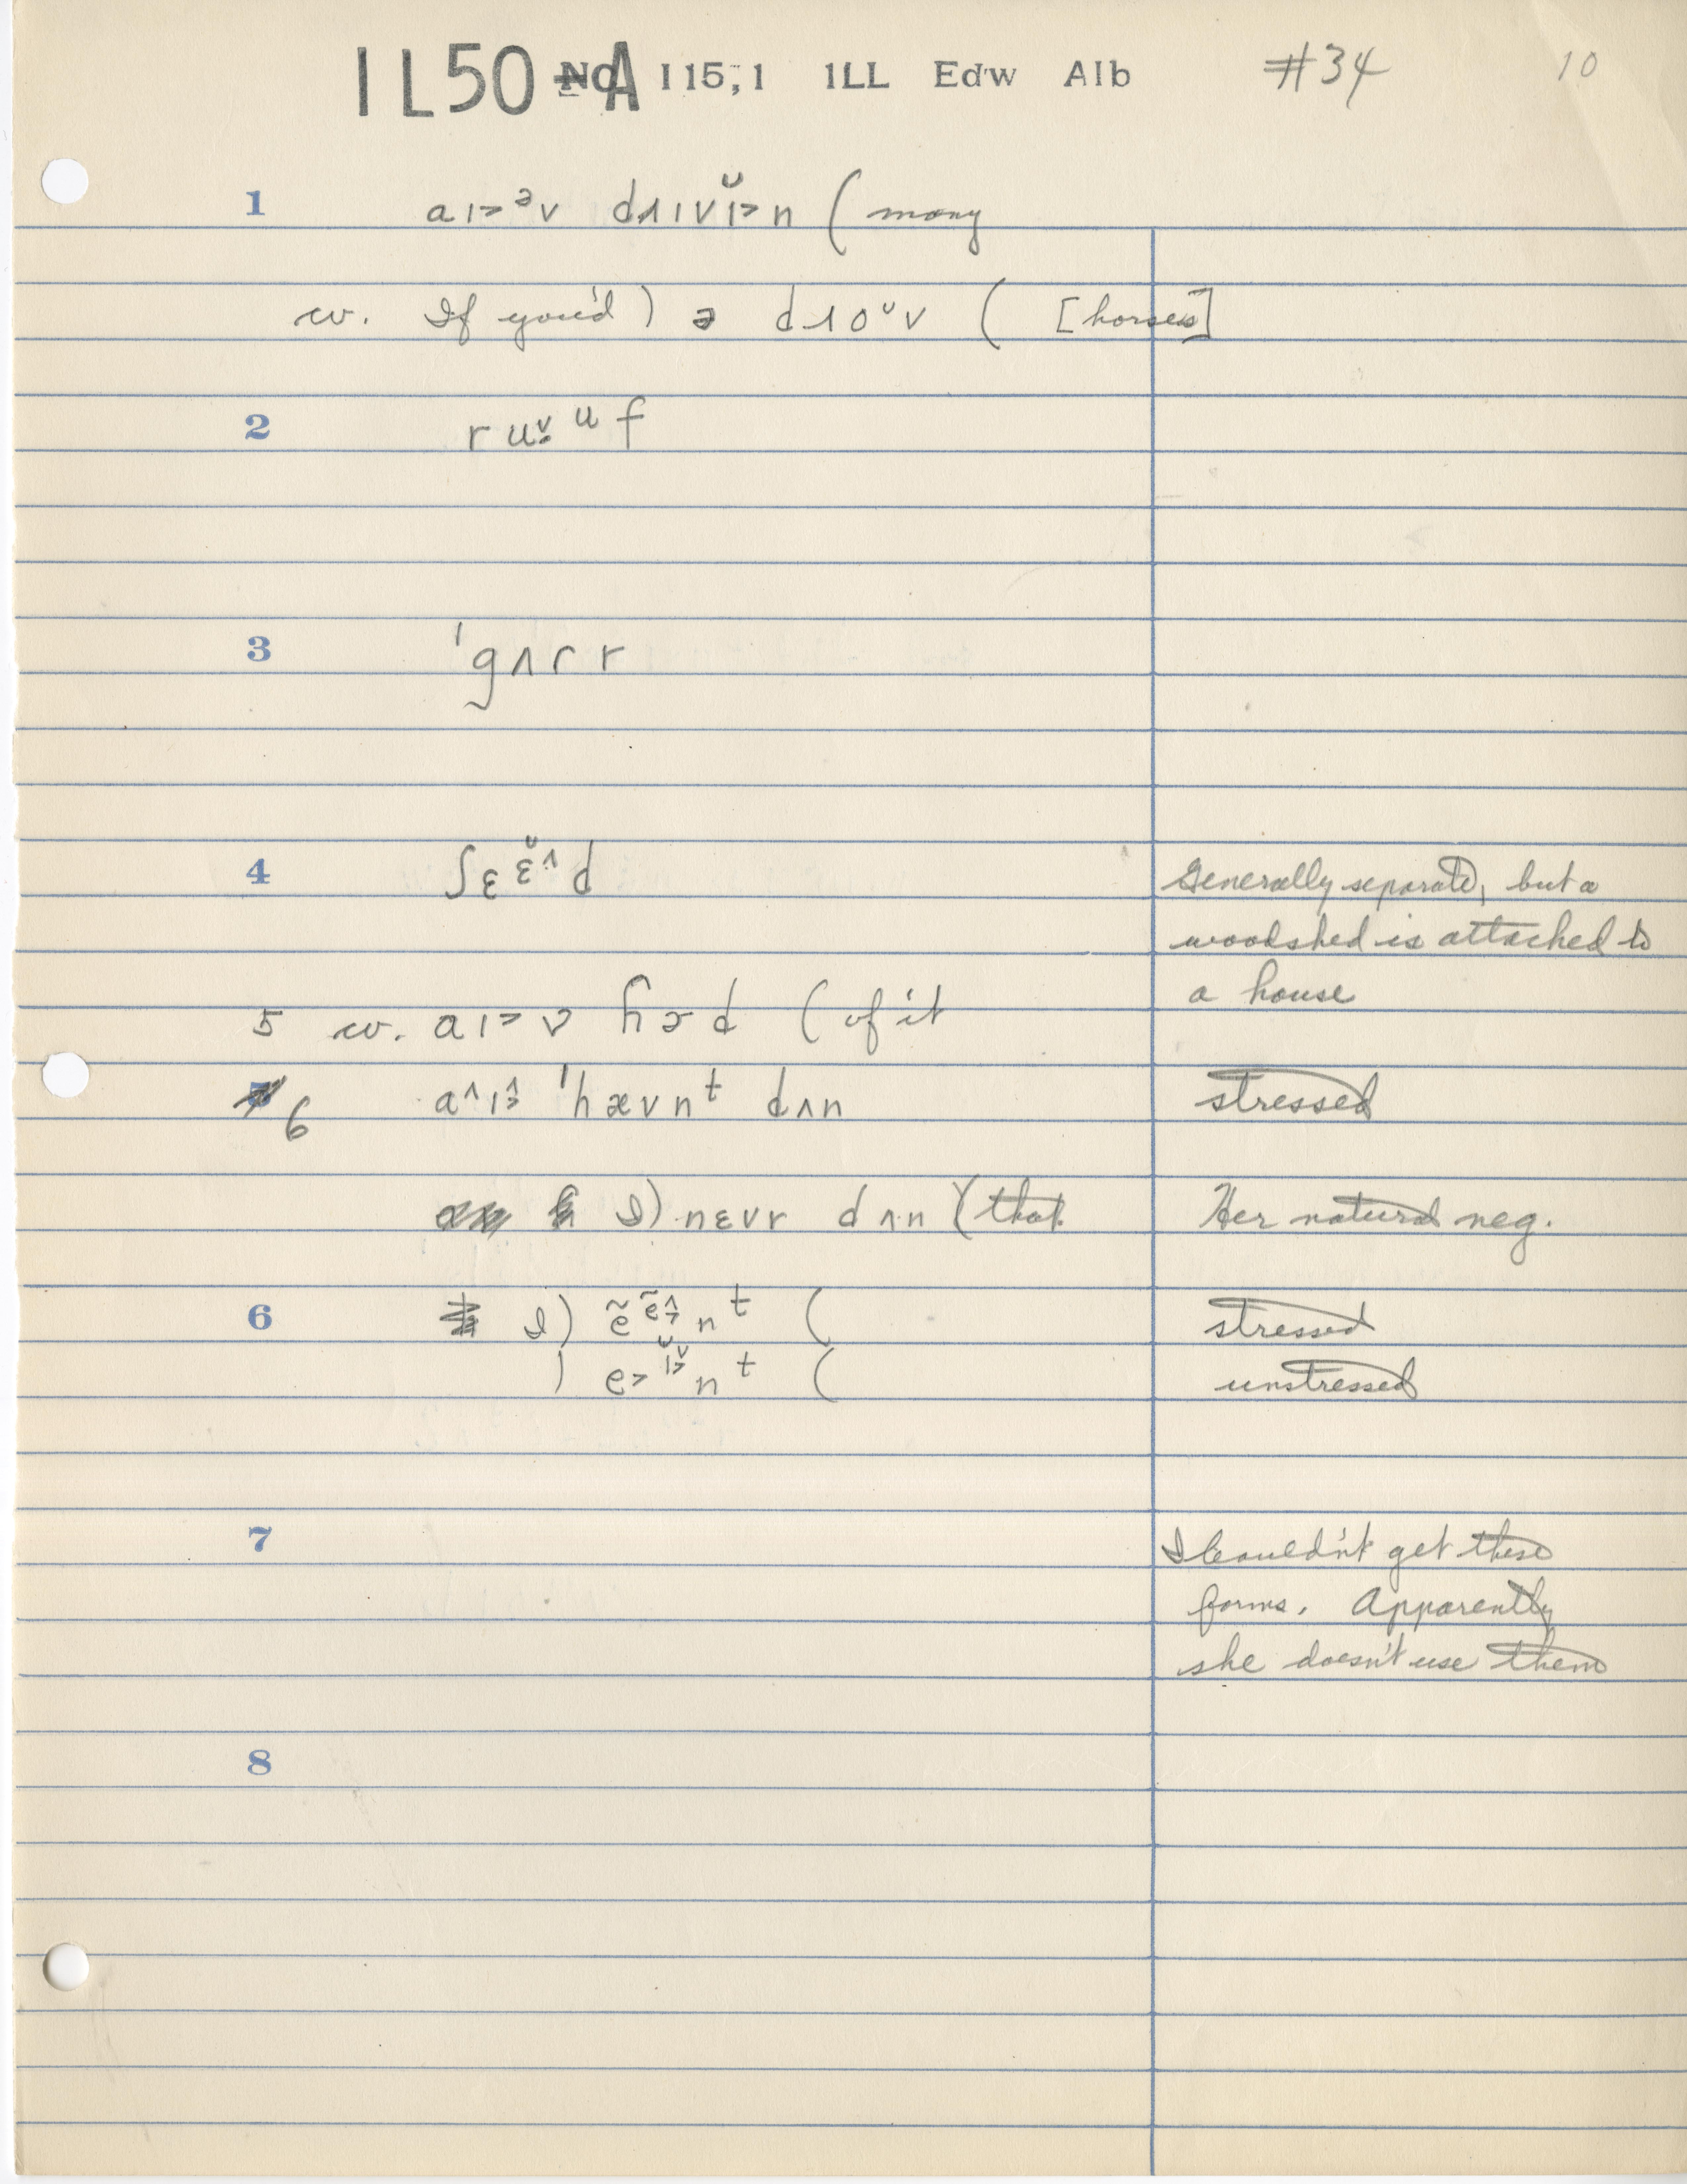 IL50 A No. 115,1 ILL Edw Alb #34 10
1 aɪ˃ᵊv drɪvɪ̆˃n (many
cv. If you'd) ə droᵁv ( [horses]
2 ruᵛ̣ᵘf
3 ˈgʌɾr
4 ʃɛɛ̆^d Generally separate, but a
woodshed is attached to
a house
5 cv. aɪ˃v hɜd (of it
6 a^ɪ˃^ ˈhævnᵗ dʌn stressed
I) nɛvr dʌn (that Her natural neg.
6 I) ẽẽ^˃nᵗ ( stressed
) e˃ɪ̆˃ᵛnᵗ ( unstressed
7 I couldn't get these
forms. Apparently
she doesn't use them
8